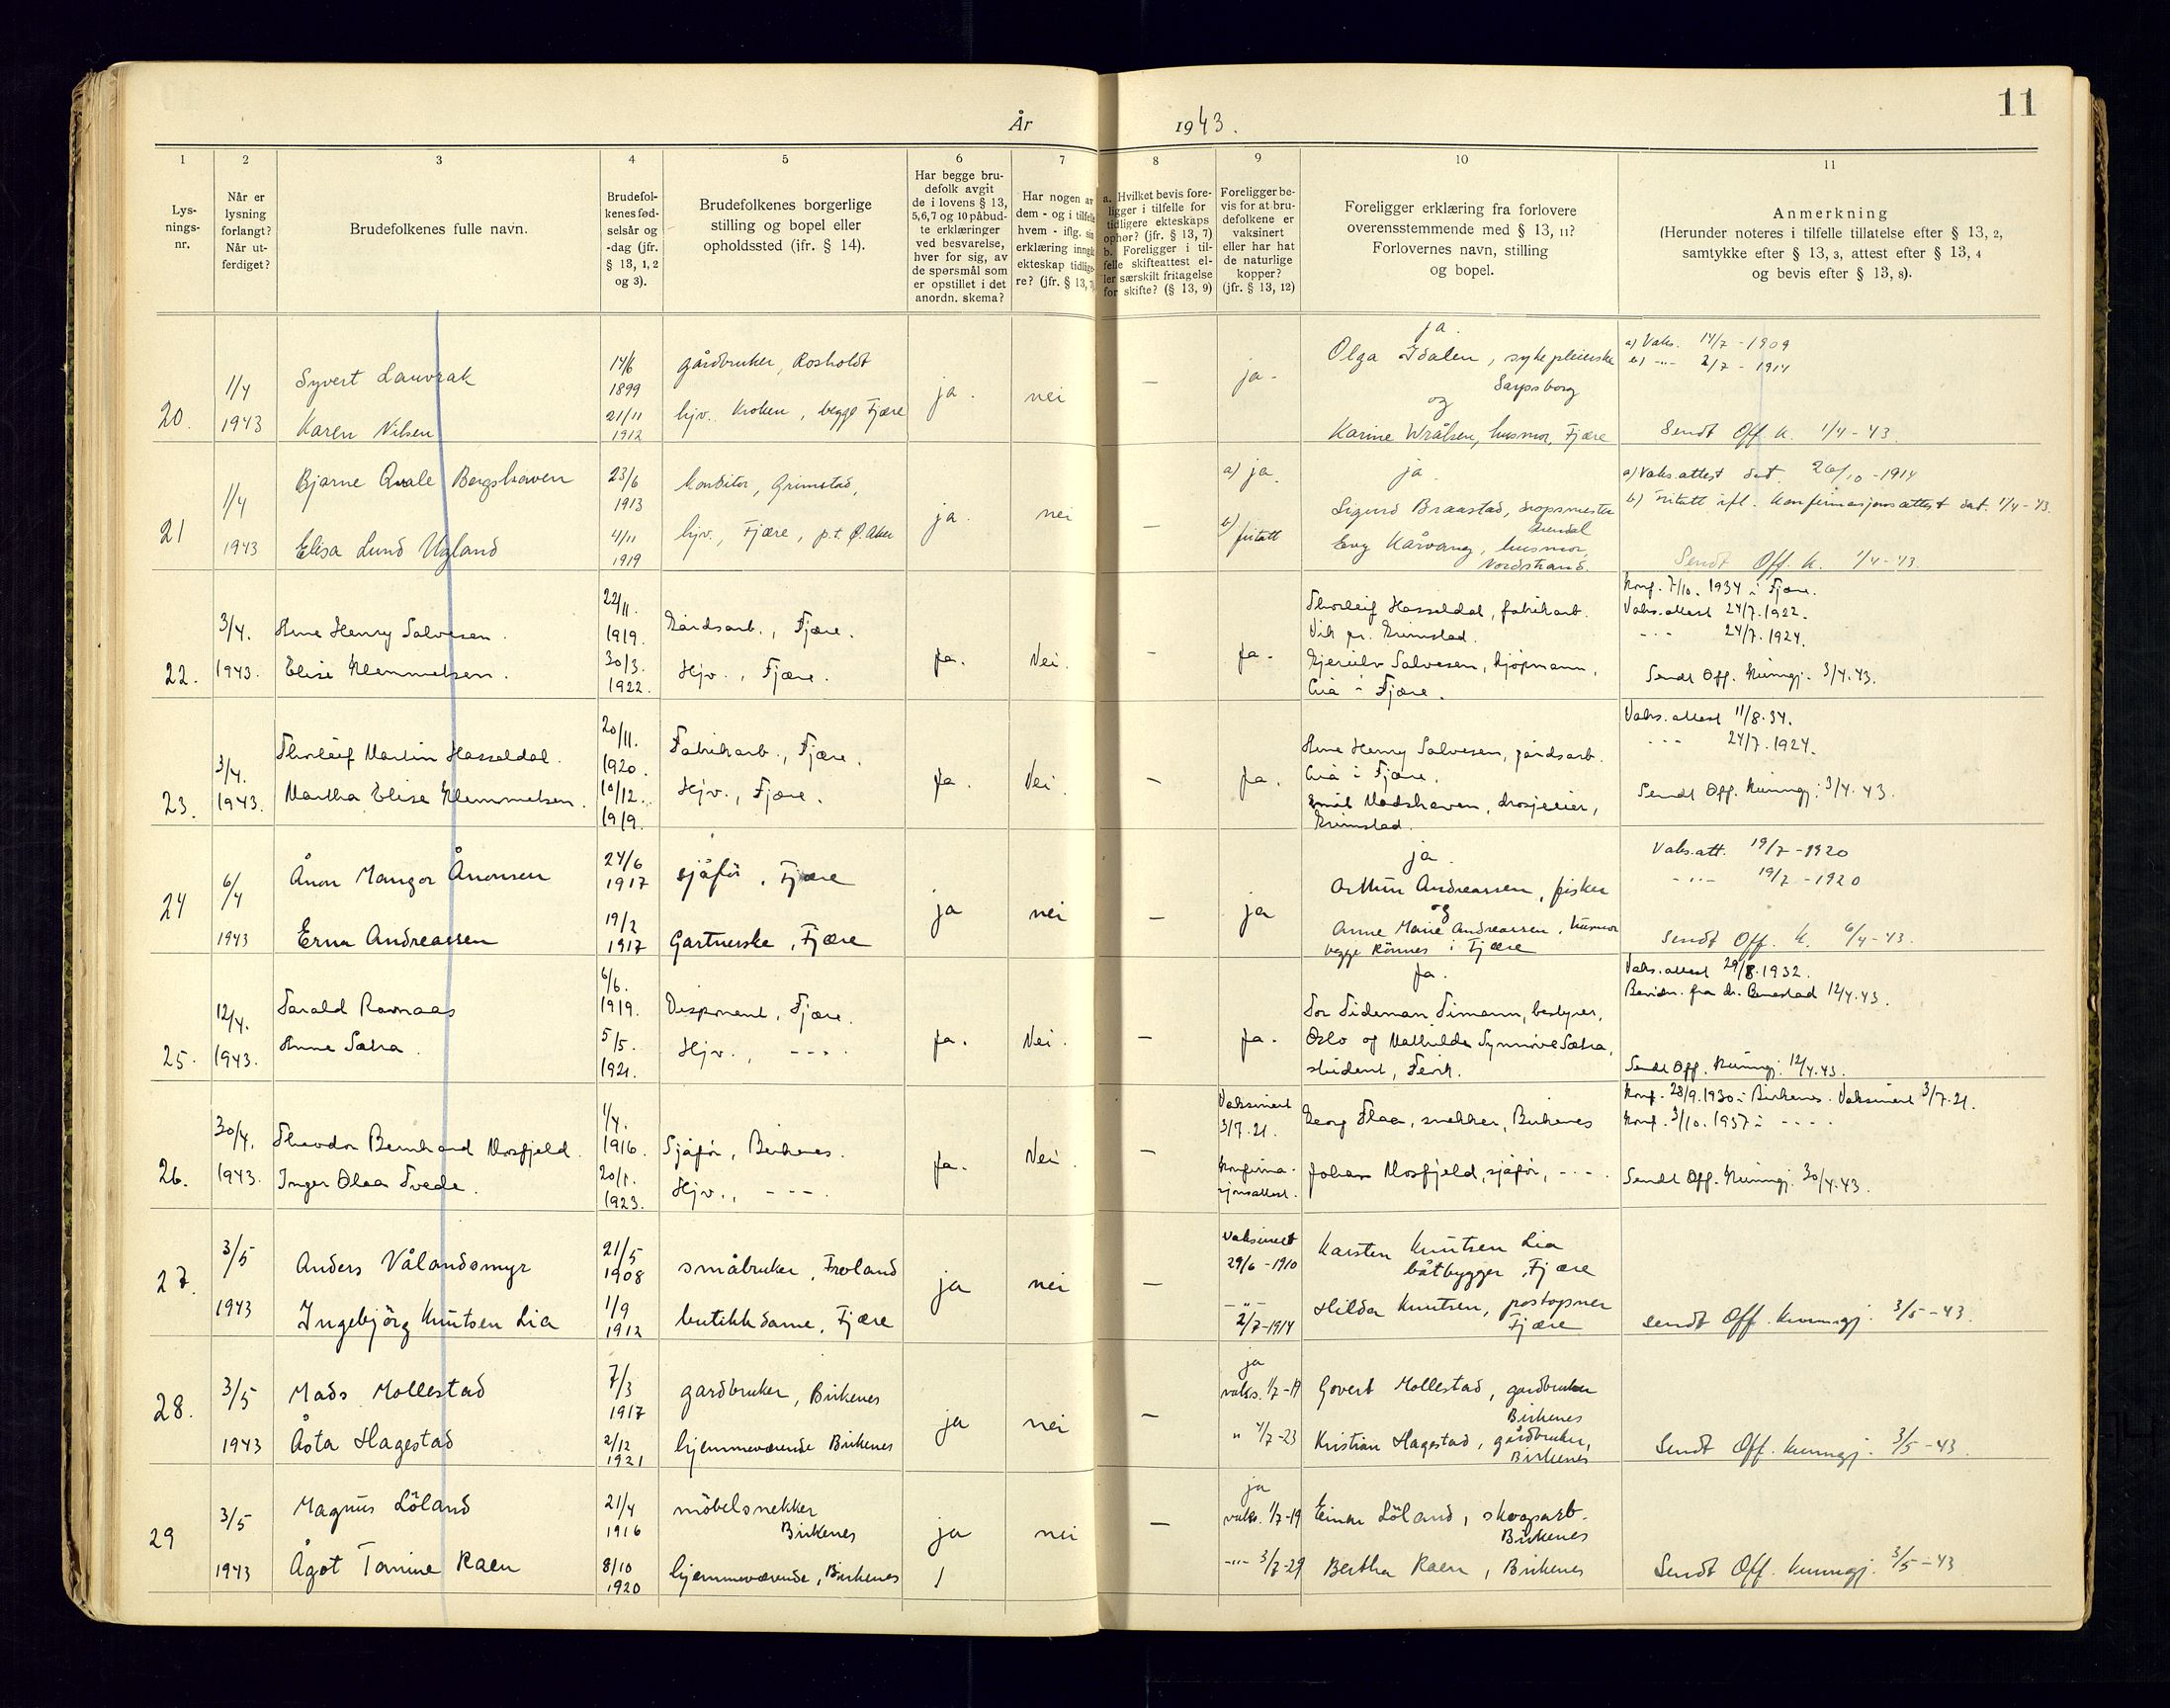 11
År 1943.
1
2
3
4
5
6
7
8
9
10
11
Lys-
nings-
nr.
Når er
lysning
forlangt?
Når ut-
ferdiget?
Brudefolkenes fulle navn.
Brudefol-
kenes fød-
selsår og
-dag (jfr.
§ 13, 1, 2
og 3).
Brudefolkenes borgerlige
stilling og bopel eller
opholdssted (jfr. § 14).
Har begge bru-
defolk avgit
de i lovens § 13,
5, 6, 7 og 10 påbud-
te erklæringer
ved besvarelse,
hver for sig, av
de spørsmål som
er opstillet i det
anordn. skema?
Har nogen av
dem - og i tilfelle
hvem - iflg. sin
erklæring inngått
ekteskap tidlige-
re? (jfr. § 13, 7)
a. Hvilket bevis fore-
ligger i tilfelle for
tidligere ekteskaps
ophør? (jfr. § 13, 7)
b. Foreligger i til-
felle skifteattest el-
ler særskilt fritagelse
for skifte? (§ 13, 9)
Foreligger be-
vis for at bru-
defolkene er
vaksinert
eller har hat
de naturlige
kopper?
(jfr. § 13, 12)
Foreligger erklæring fra forlovere
overensstemmende med § 13, 11?
Forlovernes navn, stilling
og bopel.
Anmerkning
(Herunder noteres i tilfelle tillatelse efter § 13, 2,
samtykke efter § 13, 3, attest efter § 13, 4
og bevis efter § 13, 8).
20.
1/4
1943
Syvert Lauvrak
Karen Nilsen
14/6
1899
21/11
1912
gårdbruker, Rosholdt
hjv. Kroken, begge Fjære
ja.
nei
—
ja -
ja.
Olga Idalen, sykepleierske
Sarpsborg
og
Karine Wrålsen, husmor, Fjære
a) Vaks. 14/7 - 1909
b) -"- 2/7 - 1914
Sendt Off. k. 1/4 - 43.
21
1/4
1943
Bjarne Qvale Bergshaven
Elisa Lund Ugland
23/6
1913
4/11
1919
konditor, Grimstad,
hjv., Fjære, p.t. Ø. Aker
ja.
nei
—
a) ja.
b) fritatt
ja.
Sigurd Braastad, dropsmester
Arendal
Evy Kårvang, husmor,
Nordstrand.
a) Vaks.attest dat. 26/10 - 1914
b) fritatt ifl. konfirmasjonsattest dat. 1/4 - 43.
Sendt Off. k. 1/4 - 43.
22.
3/4.
1943.
Arne Henry Salvesen.
Elise Klemmetsen.
22/11.
1919.
30/3.
1922.
Gårdsarb., Fjære.
Hjv., Fjære.
Ja.
Nei.
-
Ja.
Thorleif Hasseldal, fabrikarb.
Vik pr. Grimstad.
Gjerulv Salvesen, kjøpmann,
Griå i Fjære.
Konf. 7/10. 1934 i Fjære.
Vaks.attest 24/7. 1922.
- - - 24/7. 1924.
Sendt Off. Kunngj. 3/4. 43.
23.
3/4.
1943.
Thorleif Martin Hasseldal.
Martha Elise Klemmetsen.
20/11.
1920.
10/12.
1919.
Fabrikarb., Fjære.
Hjv., Fjære.
Ja.
Nei.
-
Ja.
Arne Henry Salvesen, gårdsarb.
Griå i Fjære.
Emil Madshaven, drosjeeier,
Grimstad.
Vaks.attest 11/8. 34.
- - - 24/7. 1924.
Sendt Off. Kunngj. 3/4. 43.
24
6/4
1943
Ånon Mangor Ånonsen
Erna Andreassen
24/6
1917
19/2
1917
sjåför, Fjære
Gartnerske, Fjære
ja
nei
—
ja
ja.
Arthur Andreassen, fisker
og
Anne Marie Andreassen, husmor
begge Rönnes i Fjære
Vaks.att. 19/7 - 1920
-"- 19/7 - 1920
Sendt Off. k. 6/4 - 43.
25.
12/4.
1943.
Tarald Ravnaas
Anne Sætra
6/6.
1919.
5/5.
1921.
Disponent, Fjære.
Hjv., - - -.
Ja.
Nei.
-
Ja.
Ja.
Tor Tideman Timann, bestyrer,
Oslo og Mathilde Synnøve Sætra,
student, Fevik.
Vaks.attest 29/8. 1932.
Bevidn. fra dr. 12/4. 43.
Sendt Off. Kunngj. 12/4. 43.
26.
30/4.
1943.
Theodor Bernhard Mosfjeld.
Inger Olea Tvede.
1/4.
1916.
20/1.
1923.
Sjåfør, Birkenes.
Hjv., - - -.
Ja.
Nei.
-
Vaksinert
3/7. 21.
Konfirma-
sjonsattest.
Georg Flaa, snekker, Birkenes
Johan Mosfjeld, sjåfør, - - -.
Konf. 28/9. 1930 i Birkenes. Vaksinert 3/7. 21.
Konf. 3/10. 1937 i - - - -
Sendt Off. Kunngj. 30/4. 43.
27.
3/5
1943
Anders Vålandsmyr
Ingebjörg Knutsen Lia
21/5
1908
1/9
1912
småbruker, Froland
butikkdame, Fjære
ja
nei
—
Vaksinert
29/6 - 1910
-"-
2/7 - 1914
Karsten Knutsen Lia
båtbygger, Fjære
Hilda Knutsen, postopner
Fjære
sendt Off. kunngj. 3/5 - 43.
28.
3/5
1943
Mads Mollestad
Åsta Hagestad
7/3
1917
2/12
1921
gardbruker, Birkenes
hjemmeværende Birkenes
ja
nei
—
ja
vaks. 1/7 - 19
" 4/7 - 23
Govert Mollestad, gardbruker
Birkenes
Kristian Hagestad, gårdbruker,
Birkenes
Sendt Off. kunngj. 3/5 - 43.
29
3/5
1943
Magnus Löland
Ågot Tomine Raen
21/4
1916
8/10
1920
möbelsnekker
Birkenes
hjemmeværende, Birkenes
ja
nei
—
ja
vaks. 1/7 - 19
-"- 3/7 - 29
Einar Löland, skogsarb.
Birkenes
Bertha Raen, Birkenes
Sendt Off. kunngj. 3/5 - 43